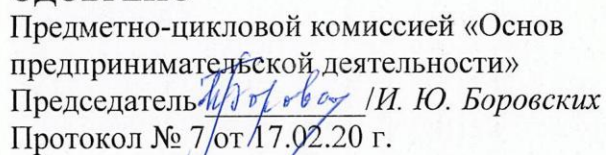 Предметно-цикловой комиссией «Основ
предпринимательской деятельности»
Председатель____________/И. Ю. Боровских
Протокол № 7 от 17.02.20 г.